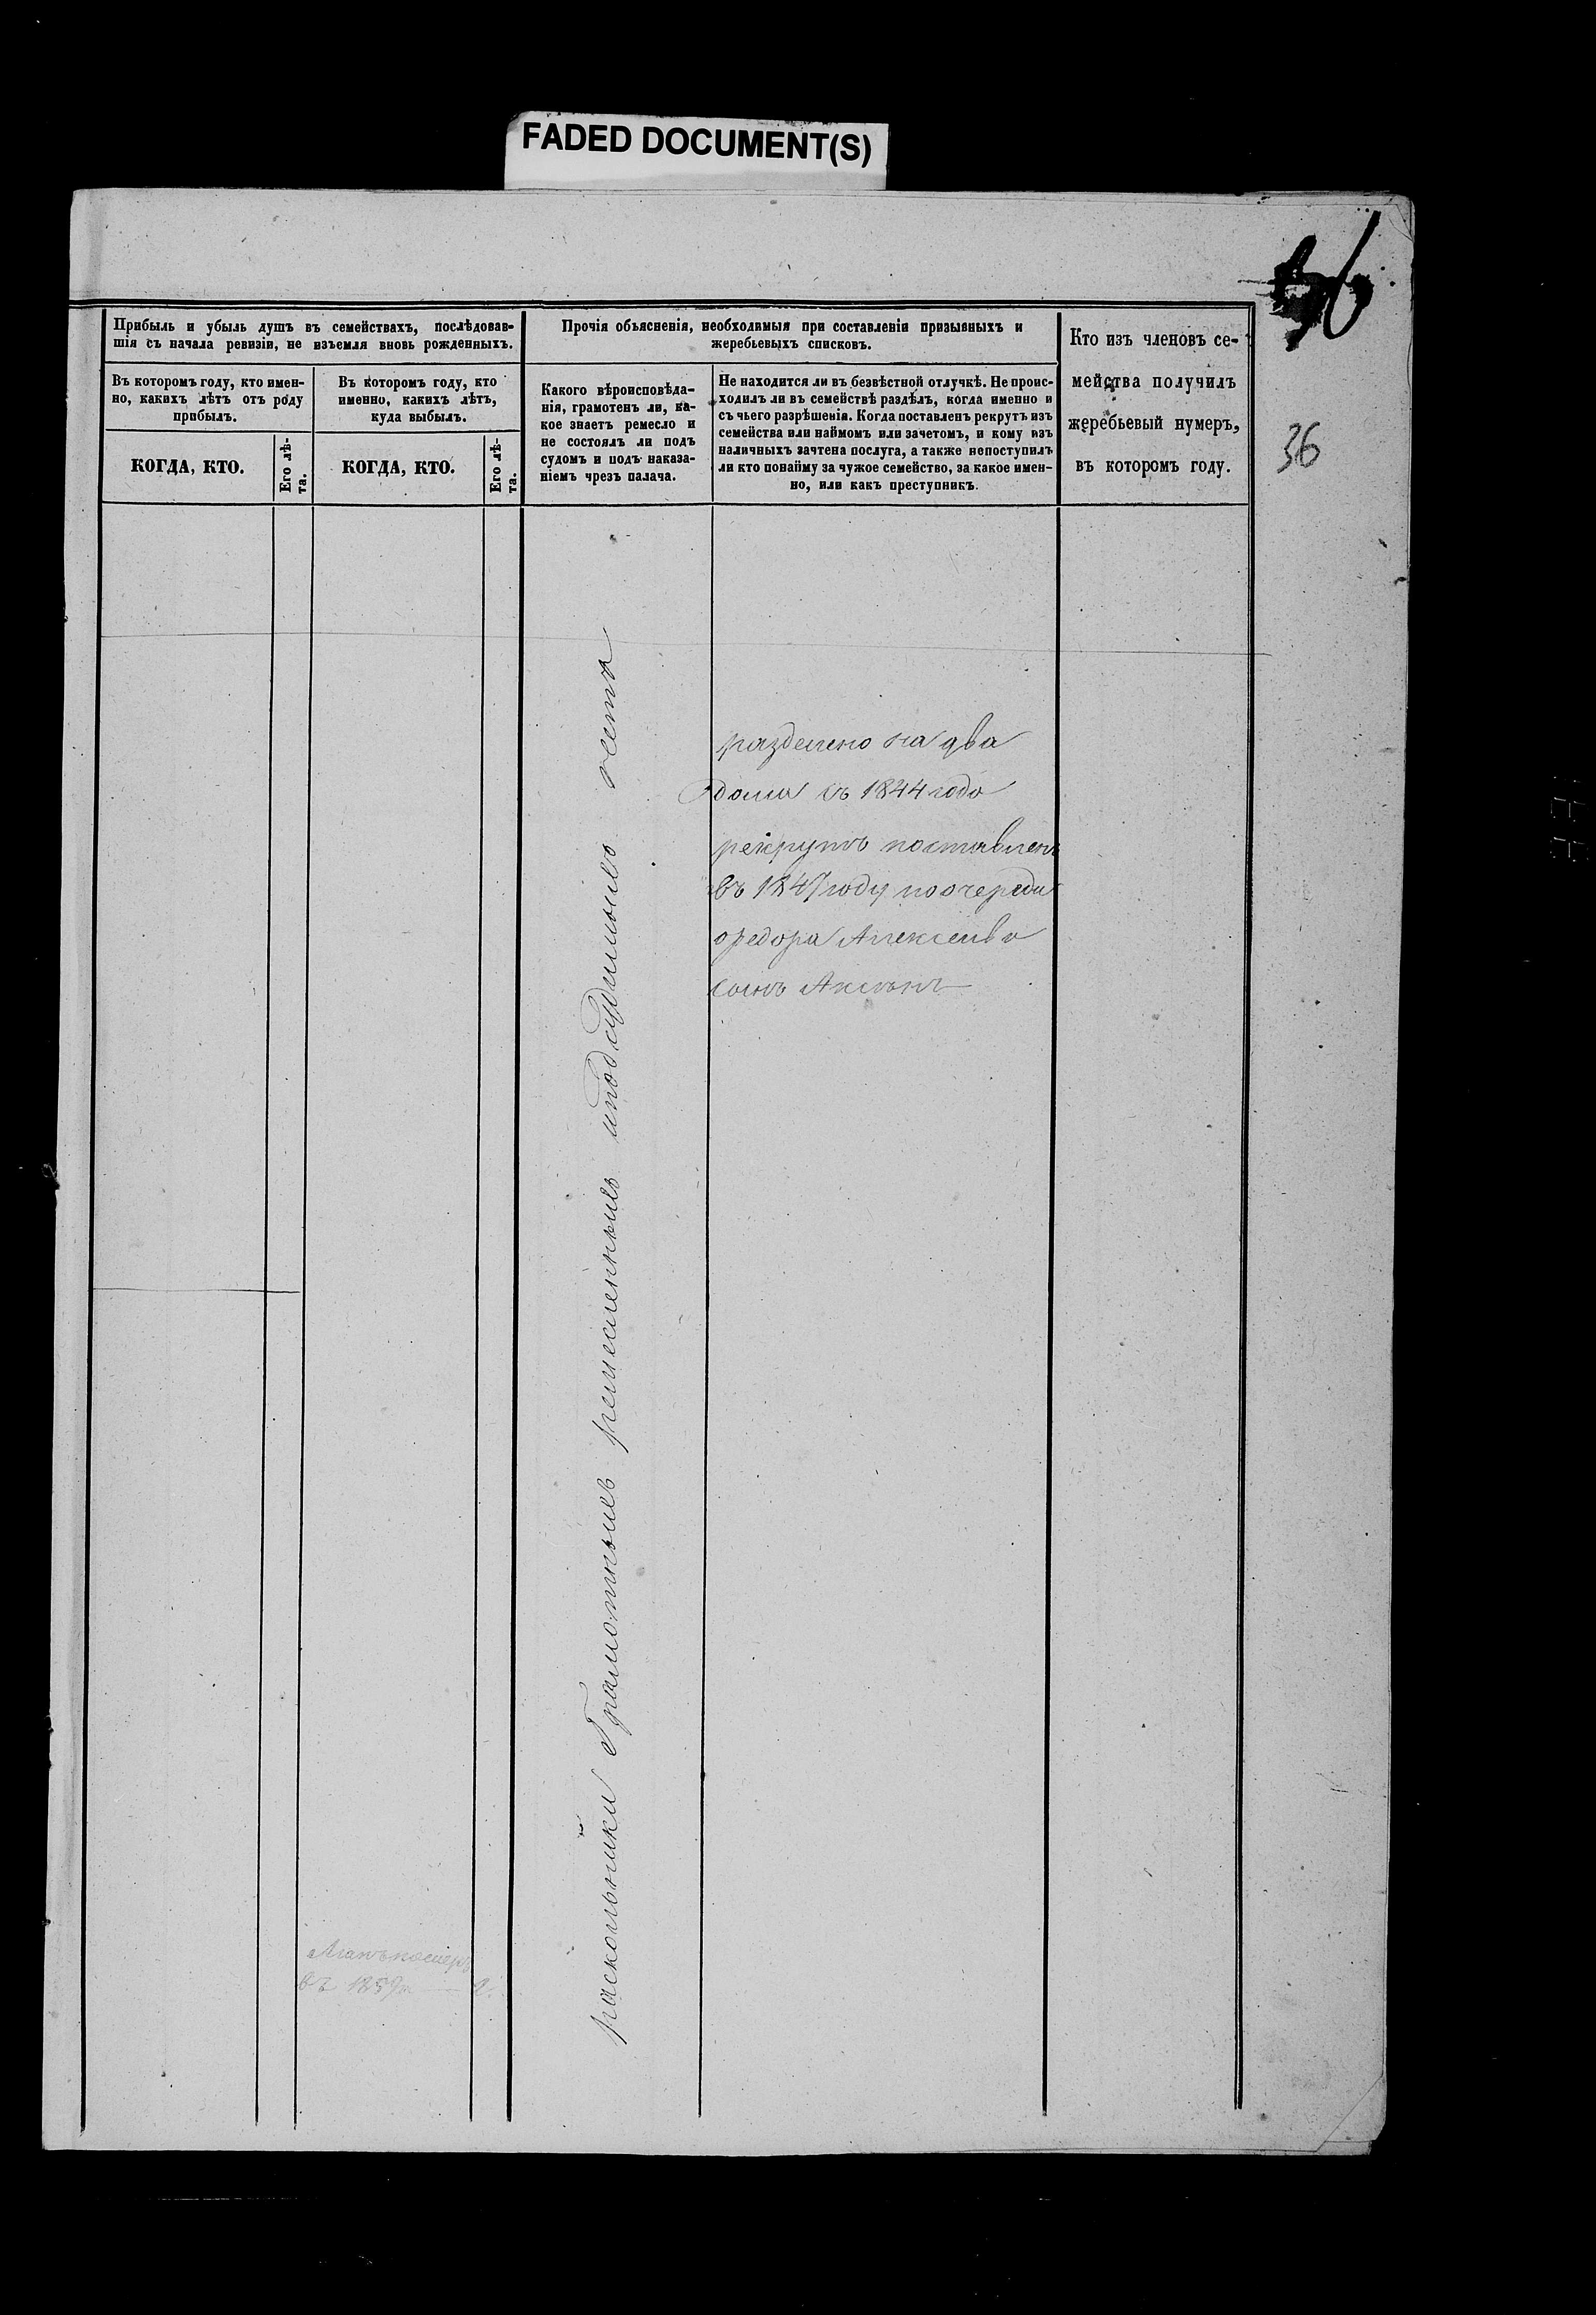 FADED DOCUMENT(S)
36
Прибыль и убыль душъ въ семействахъ, послѣдовав-
шія съ начала ревизіи, не изъемля вновь рожденныхъ.
Въ которомъ году, кто имен-
но, какихъ лѣтъ отъ роду
прибылъ.
КОГДА, КТО.
Его лѣ-
та.
Въ которомъ году, кто
именно, какихъ лѣтъ,
куда выбылъ.
КОГДА, КТО.
Его лѣ-
та.
Прочія объясненія, необходимыя при составленіи призывныхъ и
жеребьевыхъ списковъ.
Какого вѣроисповѣда-
нія, грамотенъ ли, ка-
кое знаетъ ремесло и
не состоялъ ли подъ
судомъ и подъ наказа-
ніемъ чрезъ палача.
Не находится ли въ безвѣстной отлучкѣ. Не проис-
ходилъ ли въ семействѣ раздѣлъ, когда именно и
съ чьего разрѣшенія. Когда поставленъ рекрутъ изъ
семейства или наймомъ или зачетомъ, и кому изъ
наличныхъ зачтена послуга, а также непоступилъ
ли кто понайму за чужое семейство, за какое имен-
но, или какъ преступникъ.
Кто изъ членовъ се-
мейства получилъ
жеребьевый нумеръ,
въ которомъ году.
36
раскольники Грамотныхъ ремесленныхъ иподсудимыхъ нетъ
разделено на два
дома съ 1844 года
рекрутъ поставленъ
въ 1847 году поочереди
Федора Алексеива
сынъ
въ 185